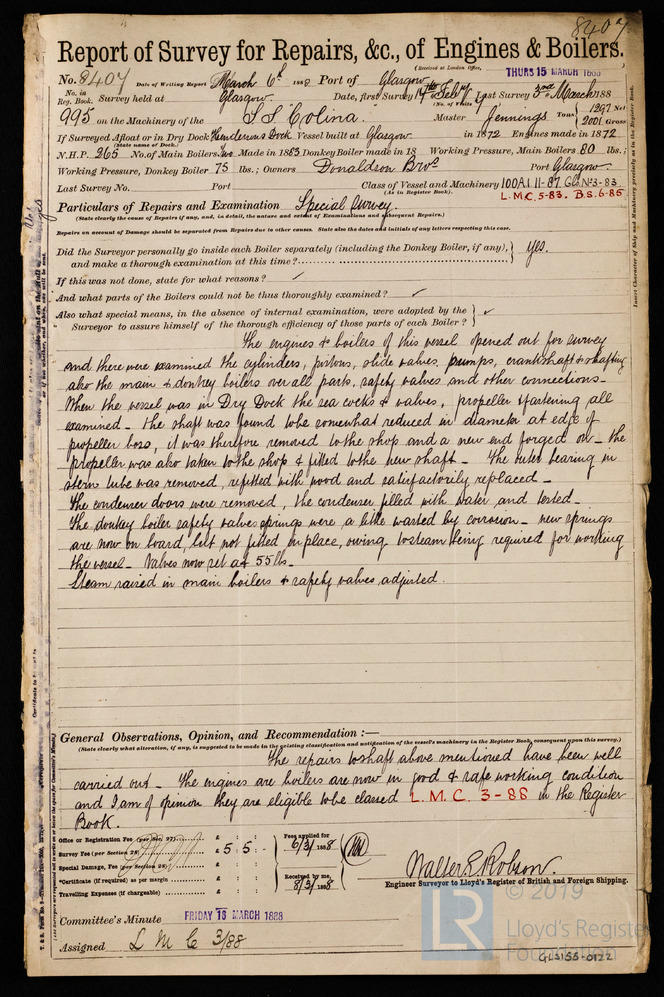 8407
Report of Survey for Repairs, &c., of Engines & Boilers.
(Received at London Office, THURS 15 MARCH 1888
No. 8407 Date of Writing Report March 6th 1888 Port of Glasgow
No. in Reg. Book. Survey held at Glasgow Date, first Survey 14th Feby Last Survey 3rd March 188
(No. of Visits
995 on the Machinery of the S S Colina. Master Jennings Tons 1267 Net 2001 Gross
If Surveyed Afloat or in Dry Dock Hendersons Dock Vessel built at Glasgow in 1872 Engines made in 1872
(State name of Dock.)
N.H.P. 265 No. of Main Boilers Two Made in 1883 Donkey Boiler made in 18 Working Pressure, Main Boilers 80 lbs.;
Working Pressure, Donkey Boiler 75 lbs.; Owners Donaldson Bros Port Glasgow.
Last Survey No. Port Class of Vessel and Machinery 100A1 11-87 Gls No 3-83
(As in Register Book). L.M.C. 5-83. B.S. 6-85
Particulars of Repairs and Examination Special Survey.
(State clearly the cause of Repairs, if any, and, in detail, the nature and extent of Examinations and subsequent Repairs.)
Repairs on account of Damage should be separated from Repairs due to other causes. State also the dates and initials of any letters respecting this case.
Did the Surveyor personally go inside each Boiler separately (including the Donkey Boiler, if any), and make a thorough examination at this time? yes.
If this was not done, state for what reasons? ✓
And what parts of the Boilers could not be thus thoroughly examined? ✓
Also what special means, in the absence of internal examination, were adopted by the Surveyor to assure himself of the thorough efficiency of those parts of each Boiler? ✓
The engines & boilers of this vessel opened out for survey
and there were examined the cylinders, pistons, slide valves, pumps, crankshaft & shafting
also the main & donkey boilers over all parts, safety valves and other connections –
When the vessel was in Dry Dock the sea cocks & valves, propeller & fastening all
examined – the shaft was found to be somewhat reduced in diameter at edge of
propeller boss, it was therefore removed to the shop and a new end forged on – the
propeller was also taken to the shop & fitted to the new shaft – The outer bearing in
stern tube was removed, refitted with wood and satisfactorily replaced –
The condenser doors were removed, the condenser filled with water and tested –
The donkey boiler safety valve springs were a little wasted by corrosion – new springs
are now on board, but not fitted in place, owing to steam being required for working
the vessel – Valves now set at 55 lbs –
Steam raised in main boilers & safety valves adjusted.
General Observations, Opinion, and Recommendation :—
(State clearly what alteration, if any, is suggested to be made in the existing classification and notification of the vessel's machinery in the Register Book, consequent upon this survey.)
The repairs to shaft above mentioned have been well
carried out – The engines are boilers are now in good & safe working condition
and I am of opinion they are eligible to be classed L.M.C. 3-88 in the Register
Book.
Office or Registration Fee (per Sec. 27) £ : :
Survey Fee (per Section 28) £ 5 : 5 : -
Special Damage Fee (per Section 28) £ : :
*Certificate (if required) as per margin £ : :
Travelling Expenses (if chargeable) £ : :
Fees applied for 6/3/1888
Received by me, 8/3/1888
Walter E Robson.
Engineer Surveyor to Lloyd's Register of British and Foreign Shipping.
Committee's Minute FRIDAY 16 MARCH 1888
Assigned L M C 3/88
Insert Character of Ship and Machinery precisely as in the Register Book.
LR
© 2019
Lloyd's Register
Foundation
GLS155-0122